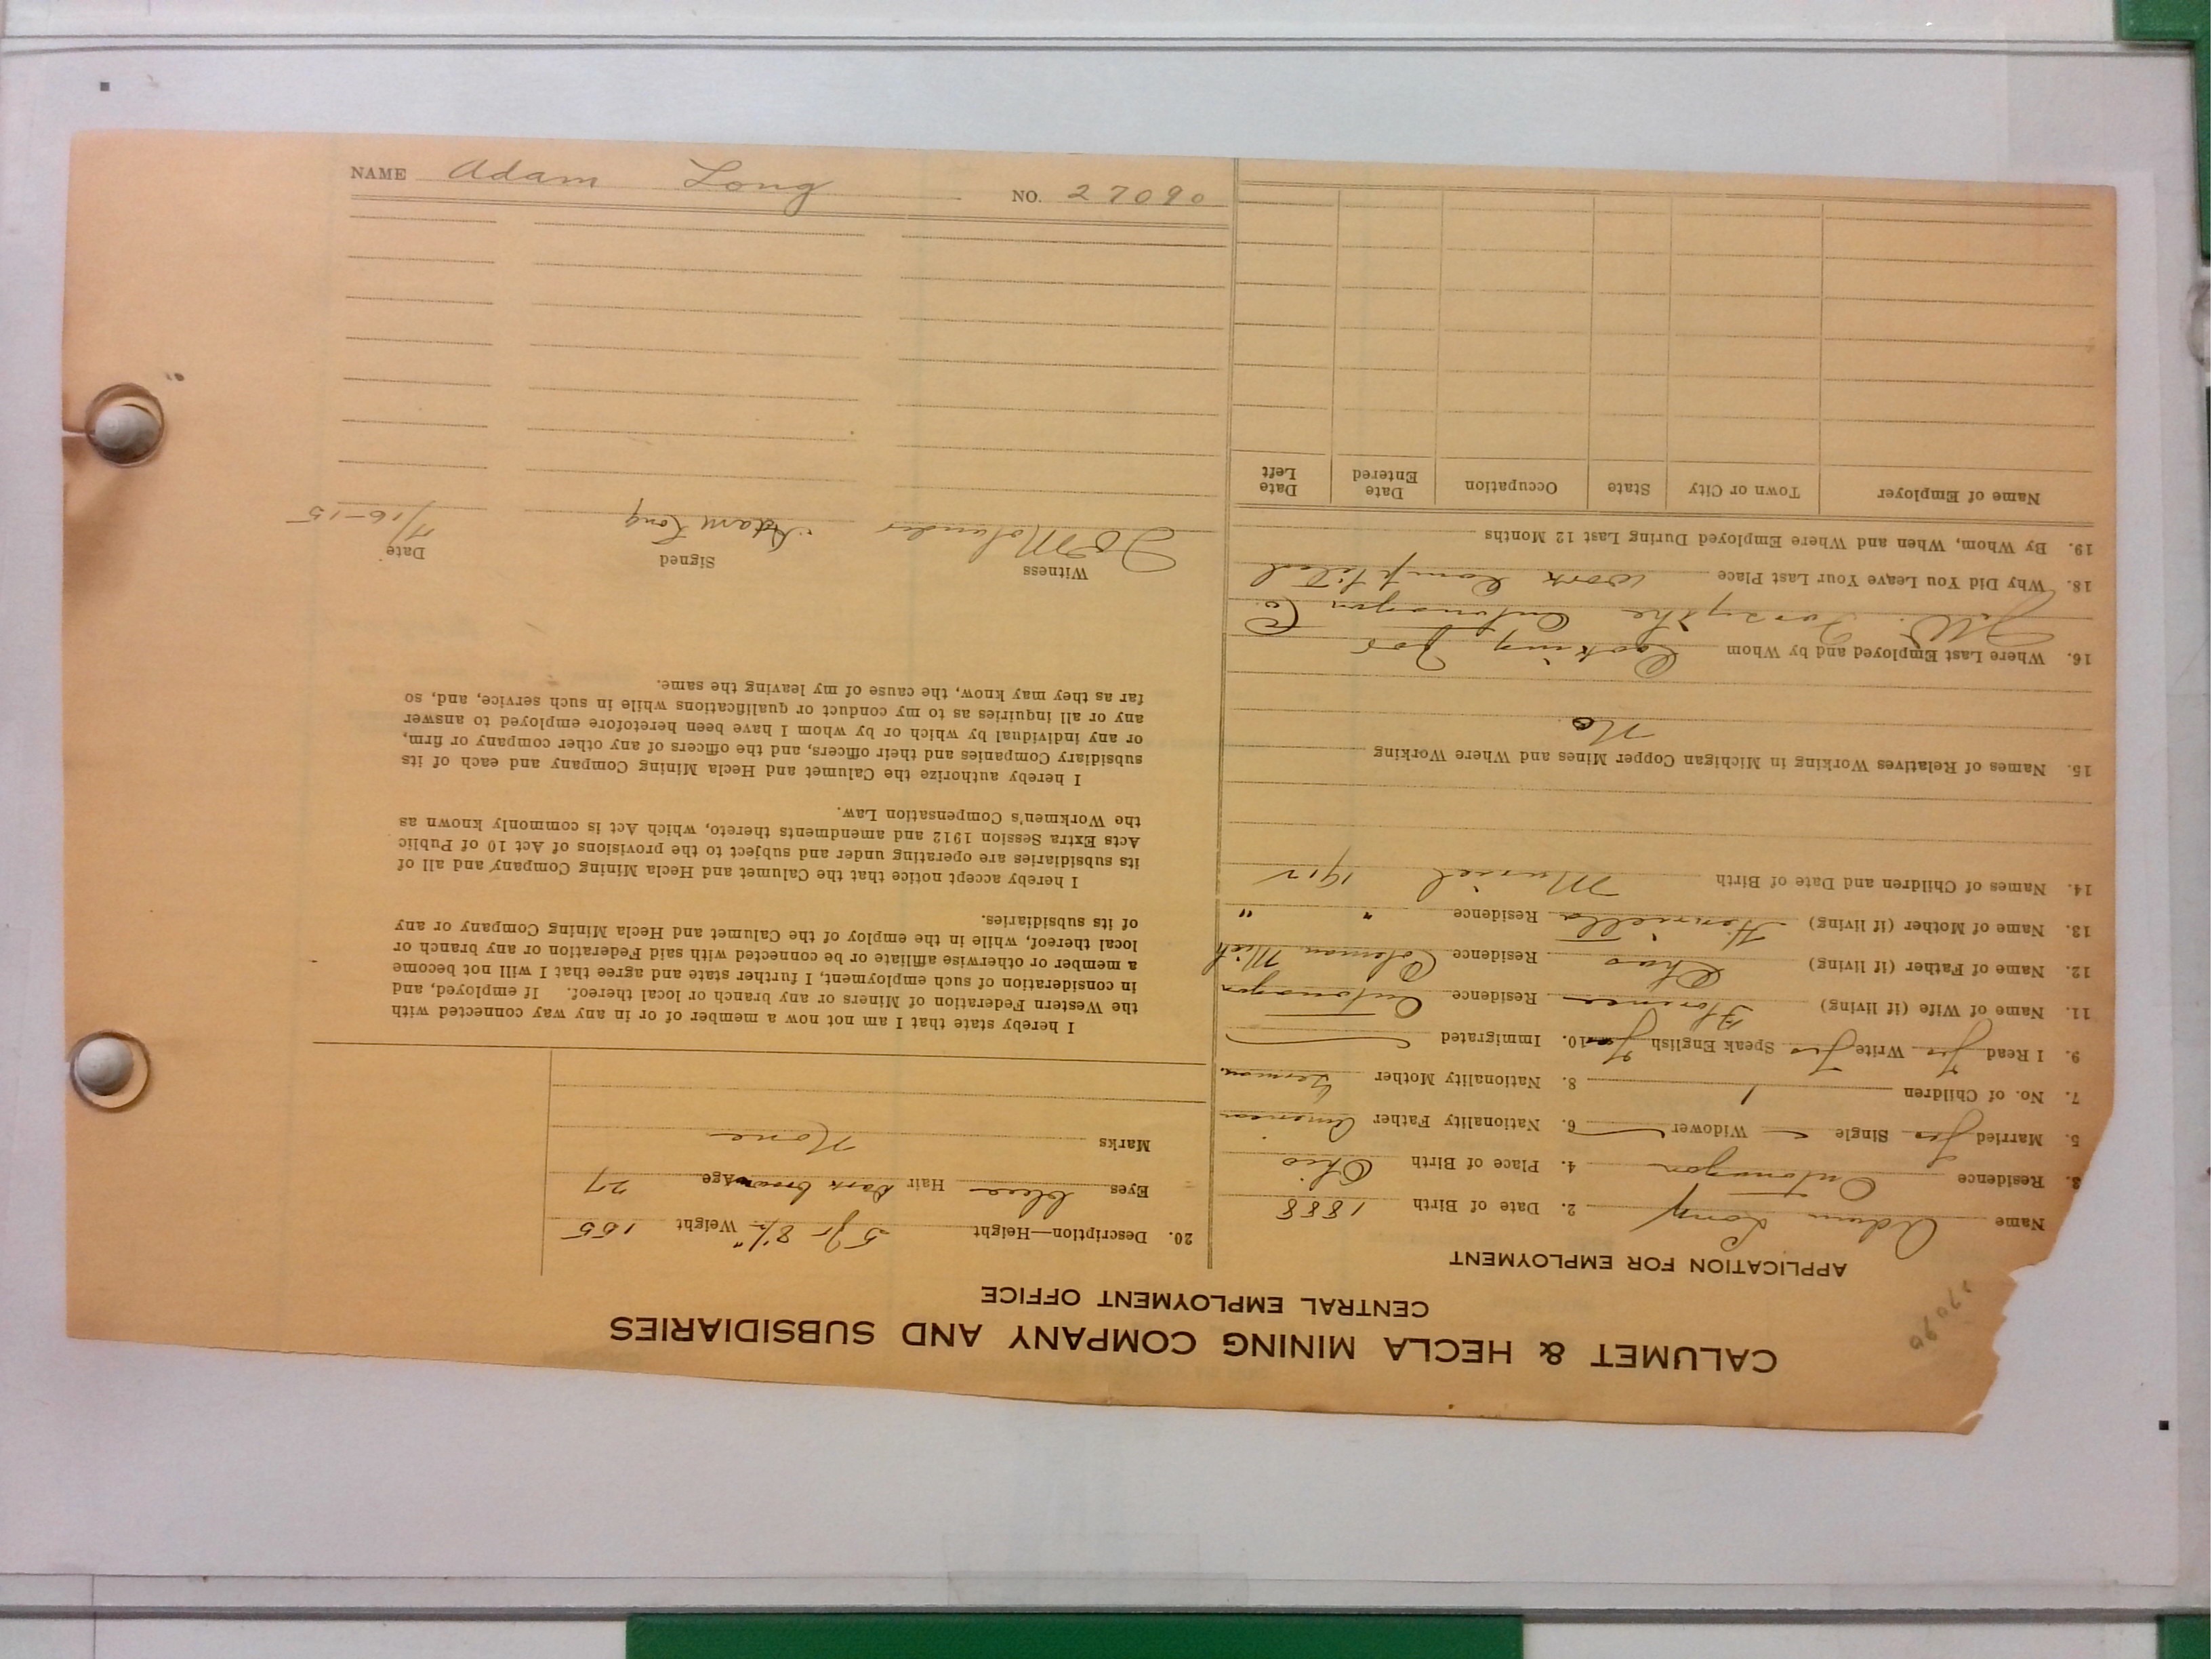 NAME Adam Long NO. 27090
27090
CALUMET & HECLA MINING COMPANY AND SUBSIDIARIES
CENTRAL EMPLOYMENT OFFICE
APPLICATION FOR EMPLOYMENT
Name Adam Long 2. Date of Birth 1888
3. Residence Ontonagon 4. Place of Birth Ohio
5. Married Yes Single Widower 6. Nationality Father American
7. No. of Children 1 8. Nationality Mother German
9. I Read Yes Write Yes Speak English Yes 10. Immigrated
11. Name of Wife (if living) Florence Residence Ontonagon
12. Name of Father (if living) Chas Residence Coleman Mich
13. Name of Mother (if living) Henrietta Residence " "
14. Names of Children and Date of Birth Muriel 1912
15. Names of Relatives Working in Michigan Copper Mines and Where Working
No
16. Where Last Employed and by Whom Cooking for
J.W. Forsythe Ontonagon Co.
18. Why Did You Leave Your Last Place work completed
19. By Whom, When and Where Employed During Last 12 Months
Name of Employer Town or City State Occupation Date Entered Date Left
20. Description—Height 5 ft 8 1/2" Weight 155
Eyes blue Hair Dark brown Age 27
Marks None
I hereby state that I am not now a member of or in any way connected with
the Western Federation of Miners or any branch or local thereof. If employed, and
in consideration of such employment, I further state and agree that I will not become
a member or otherwise affiliate or be connected with said Federation or any branch or
local thereof, while in the employ of the Calumet and Hecla Mining Company or any
of its subsidiaries.
I hereby accept notice that the Calumet and Hecla Mining Company and all of
its subsidiaries are operating under and subject to the provisions of Act 10 of Public
Acts Extra Session 1912 and amendments thereto, which Act is commonly known as
the Workmen's Compensation Law.
I hereby authorize the Calumet and Hecla Mining Company and each of its
subsidiary Companies and their officers, and the officers of any other company or firm,
or any individual by which or by whom I have been heretofore employed to answer
any or all inquiries as to my conduct or qualifications while in such service, and, so
far as they may know, the cause of my leaving the same.
Witness Signed Date
Molander Adam Long 16-15